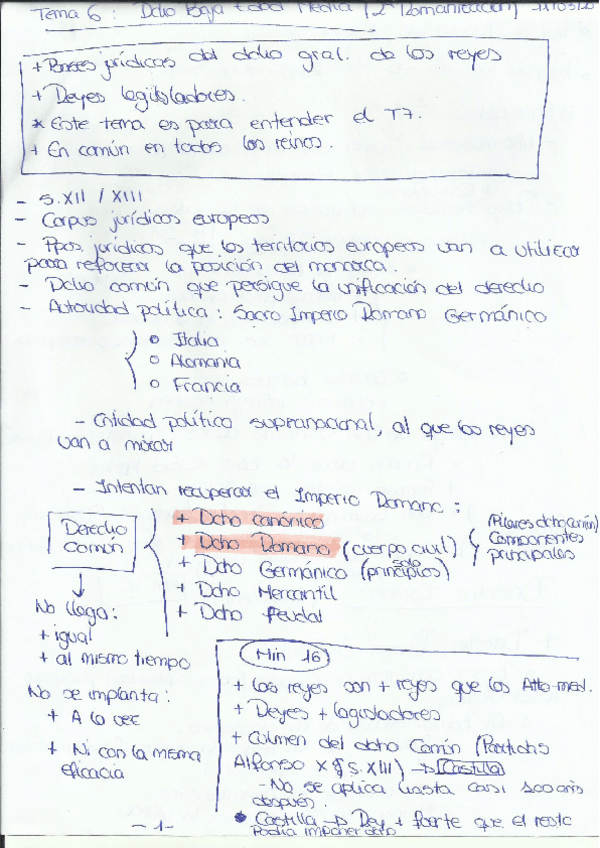 Tema 6: Dcho Baja Edad Media (2ª Romanización)
+ Bases jurídicas del dcho gral. de los reyes
+ Reyes legisladores.
* Este tema es para entender el T7.
+ En común en todos los reinos.
- S. XII / XIII
- Corpus jurídicos europeos
- Ppos. jurídicos que los territorios europeos van a utilizar
para reforzar la posición del monarca.
- Dcho común que persigue la unificación del derecho
- Autoridad política: Sacro Imperio Romano Germánico
o Italia
o Alemania
o Francia
- Entidad política supranacional, al que los reyes
van a mirar
- Intentan recuperar el Imperio Romano:
Derecho
Común
+ Dcho canónico
+ Dcho Romano (cuerpo civil)
+ Dcho Germánico (solo principios)
+ Dcho Mercantil
+ Dcho feudal
(Pilares dcho común)
Componentes
principales
No llega:
+ igual
+ al mismo tiempo
No se implanta:
+ A la vez
+ Ni con la misma
eficacia
Min 16
+ Los reyes son + reyes que los Alto-med.
+ Reyes + legisladores
+ Culmen del dcho Común (Partidas
Alfonso X S. XIII) → Castilla
- No se aplica hasta casi 100 años
después.
• Castilla → Rey + fuerte que el resto
Podía imponer dcho
- 1 -